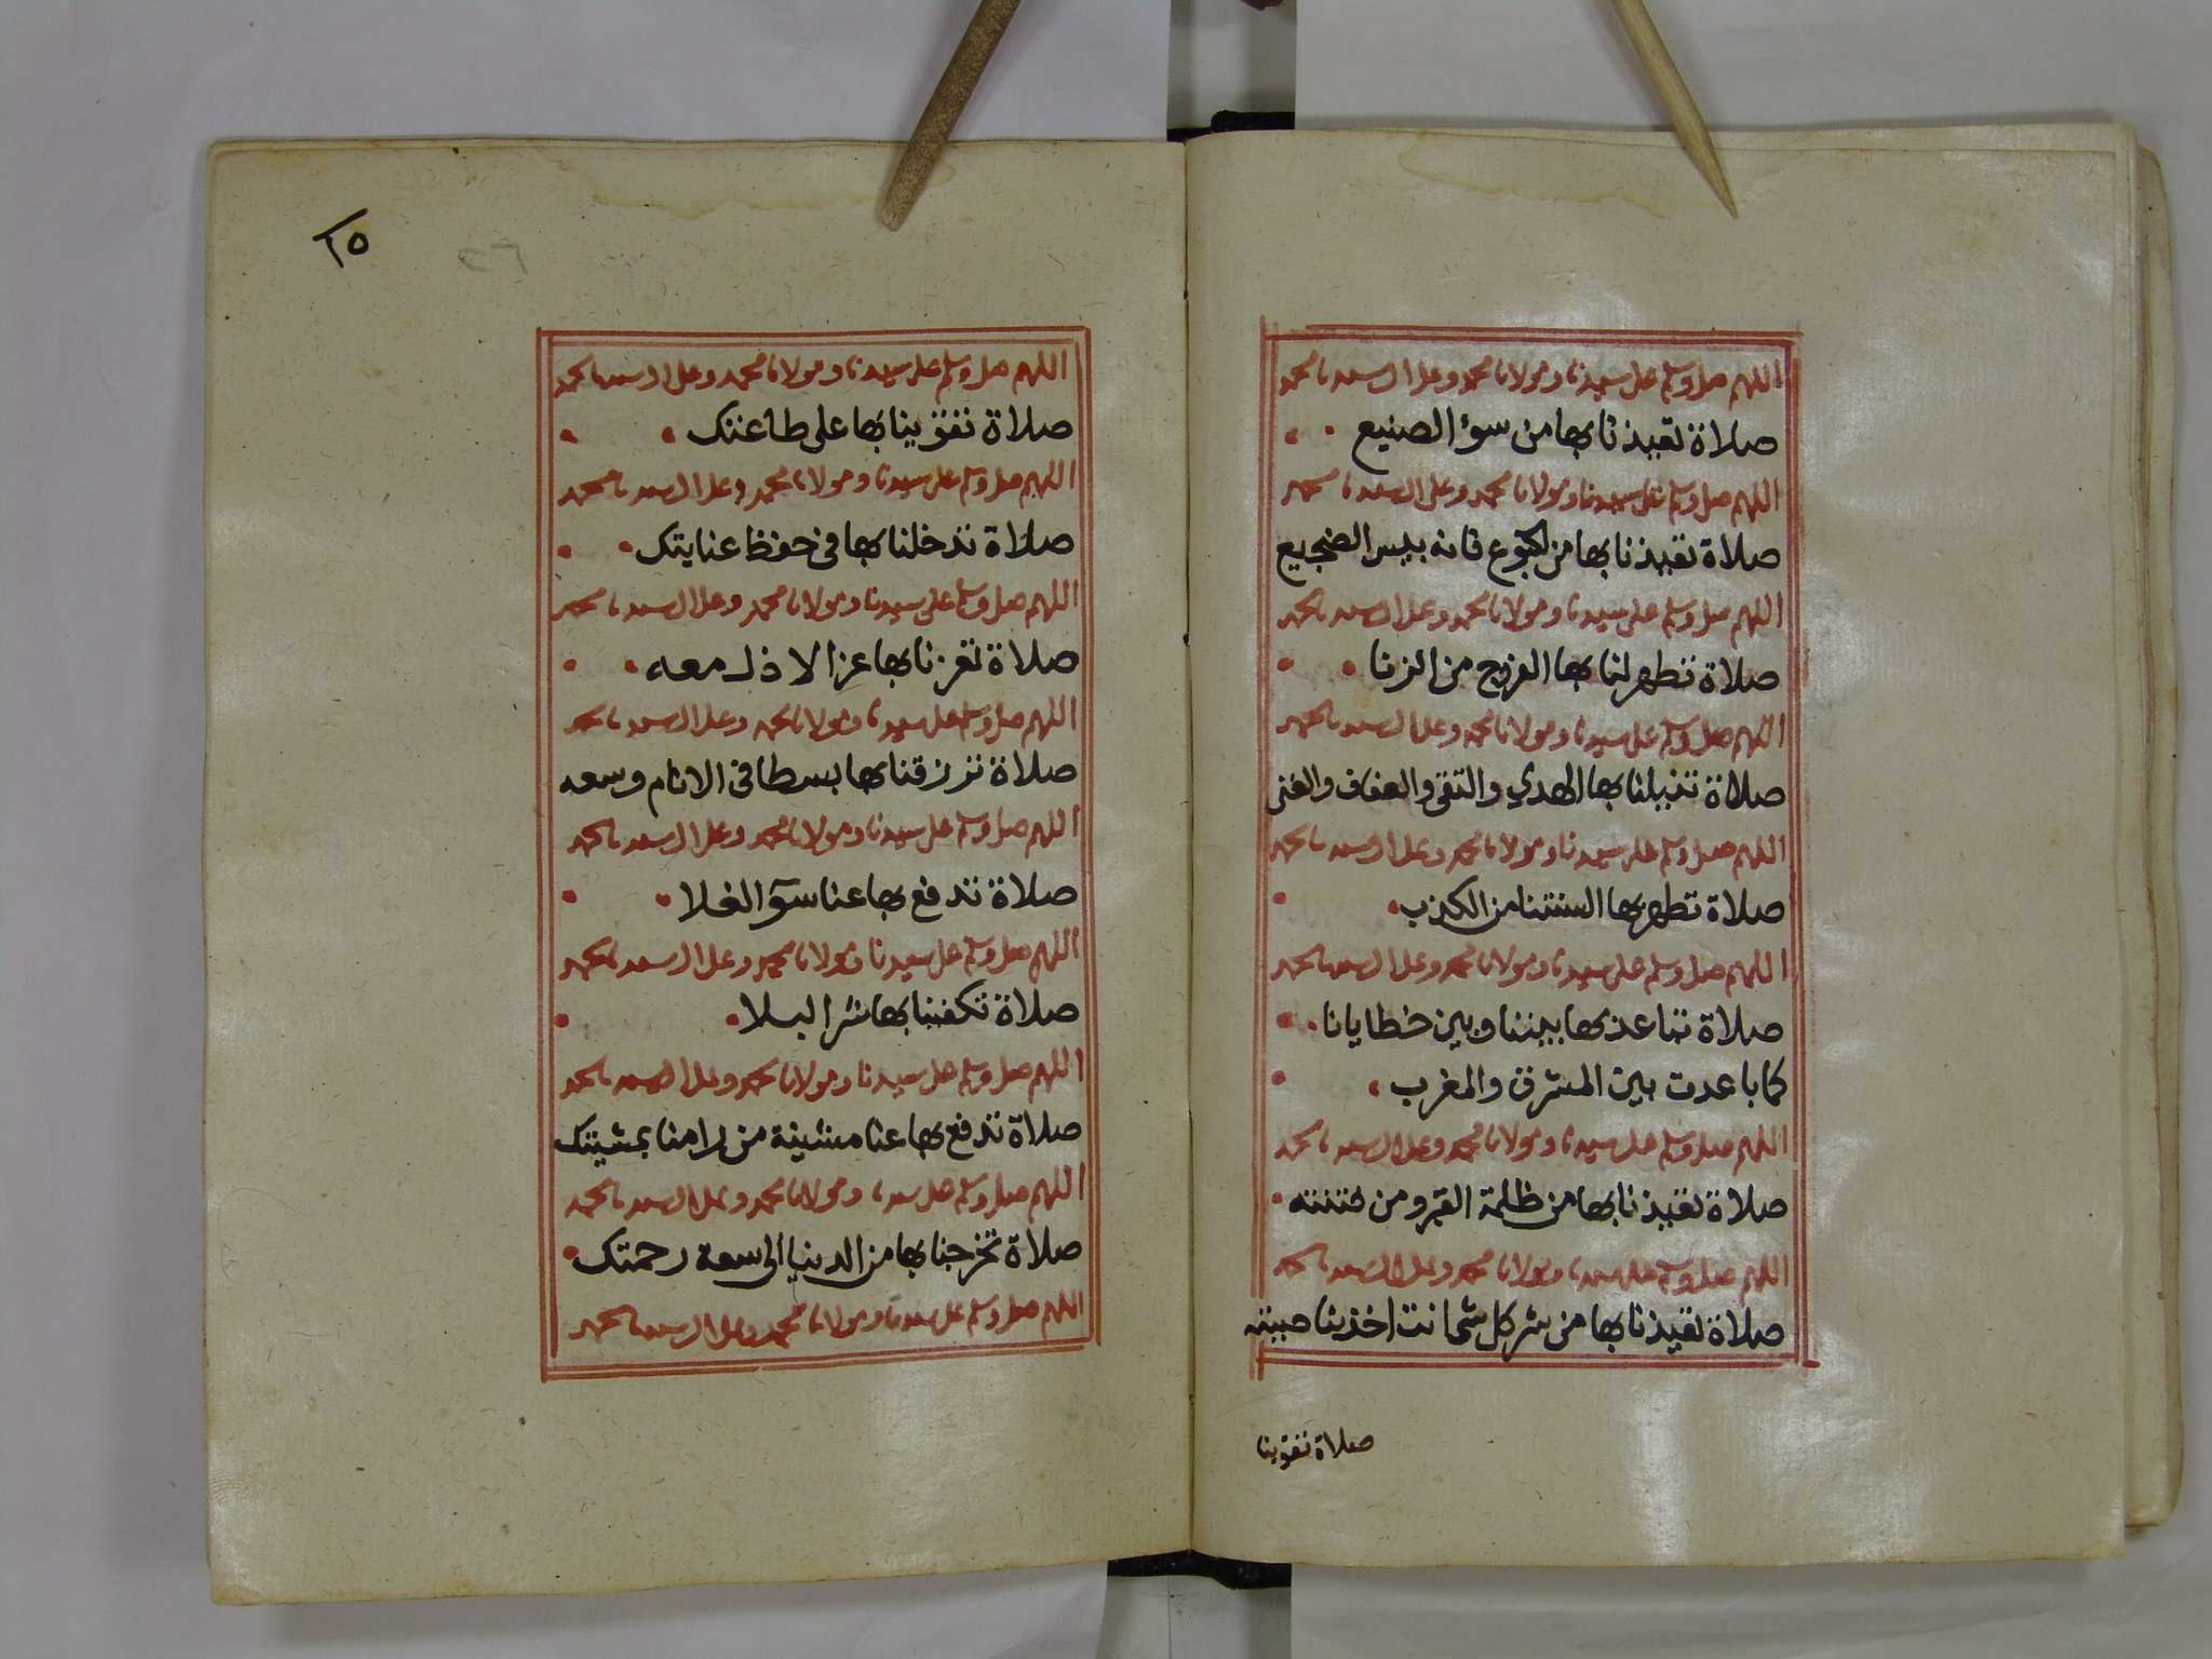 اللهم صل وسلم على سيدنا ومولانا محمد وعلى ال سيدنا محمد
صلاة تعيذنا بها من سوء الصنيع
اللهم صل وسلم على سيدنا ومولانا محمد وعلى ال سيدنا محمد
صلاة تعيذنا بها من الجوع فانه بيس الضجيع
اللهم صل وسلم على سيدنا ومولانا محمد وعلى ال سيدنا محمد
صلاة تطهر لنا بها الفروج من الزنا
اللهم صل وسلم على سيدنا ومولانا محمد وعلى ال سيدنا محمد
صلاة تنيلنا بها الهدي والتقى والعفاف والغنى
اللهم صل وسلم على سيدنا ومولانا محمد وعلى ال سيدنا محمد
صلاة تطهر بها السنتنا من الكذب
اللهم صل وسلم على سيدنا ومولانا محمد وعلى ال سيدنا محمد
صلاة تباعد بها بيننا وبين خطايانا
كما باعدت بين المشرق والمغرب
اللهم صل وسلم على سيدنا ومولانا محمد وعلى ال سيدنا محمد
صلاة تعيذنا بها من ظلمة القبر ومن فتنته
اللهم صل وسلم على سيدنا ومولانا محمد وعلى ال سيدنا محمد
صلاة تعيذنا بها من شر كل شي انت اخذ بناصيته
صلاة تقوينا
٢٥
٢٦
اللهم صل وسلم على سيدنا ومولانا محمد وعلى ال سيدنا محمد
صلاة تقوينا بها على طاعتك
اللهم صل وسلم على سيدنا ومولانا محمد وعلى ال سيدنا محمد
صلاة تدخلنا بها في حفظ عنايتك
اللهم صل وسلم على سيدنا ومولانا محمد وعلى ال سيدنا محمد
صلاة تعزنا بها عزا لا ذل معه
اللهم صل وسلم على سيدنا ومولانا محمد وعلى ال سيدنا محمد
صلاة ترزقنا بها بسطا في الانام وسعه
اللهم صل وسلم على سيدنا ومولانا محمد وعلى ال سيدنا محمد
صلاة تدفع بها عنا سوٓ الغلا
اللهم صل وسلم على سيدنا ومولانا محمد وعلى ال سيدنا محمد
صلاة تكفينا بها شر البلا
اللهم صل وسلم على سيدنا ومولانا محمد وعلى ال سيدنا محمد
صلاة تدفع بها عنا مشية من رامنا بمشيتك
اللهم صل وسلم على سيدنا ومولانا محمد وعلى ال سيدنا محمد
صلاة تخرجنا بها من الدنيا الى سعة رحمتك
اللهم صل وسلم على سيدنا ومولانا محمد وعلى ال سيدنا محمد